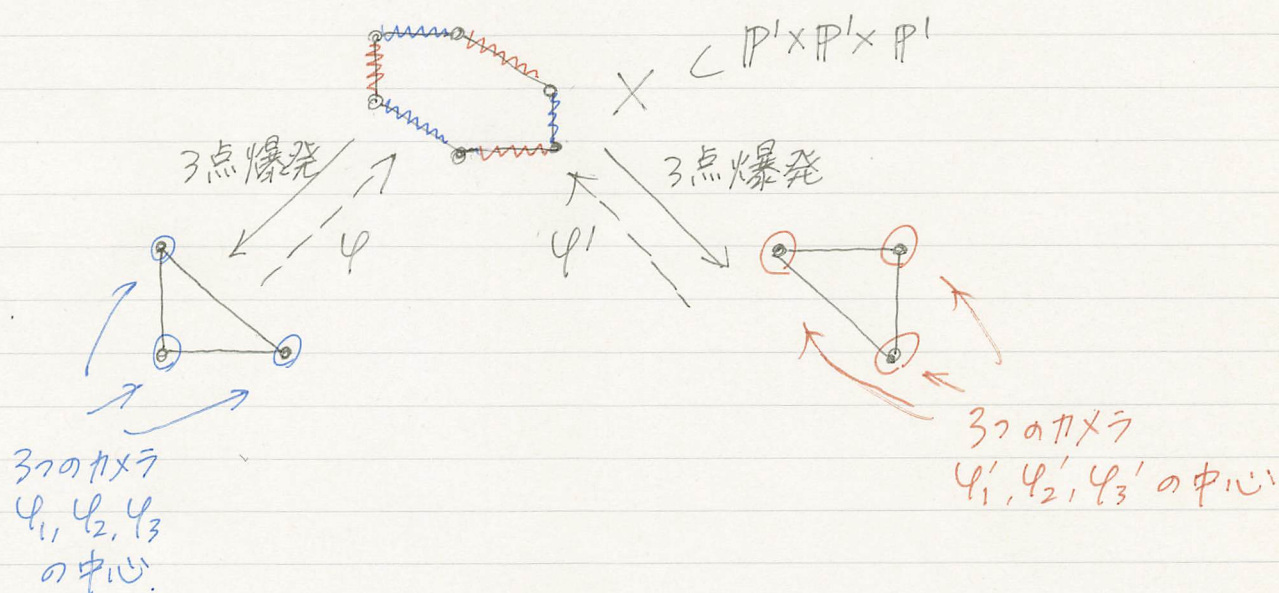 X ⊂ ℙ¹×ℙ¹×ℙ¹
3点爆発
3点爆発
φ
φ'
3つのカメラ
φ₁, φ₂, φ₃
の中心.
3つのカメラ
φ₁', φ₂', φ₃' の中心